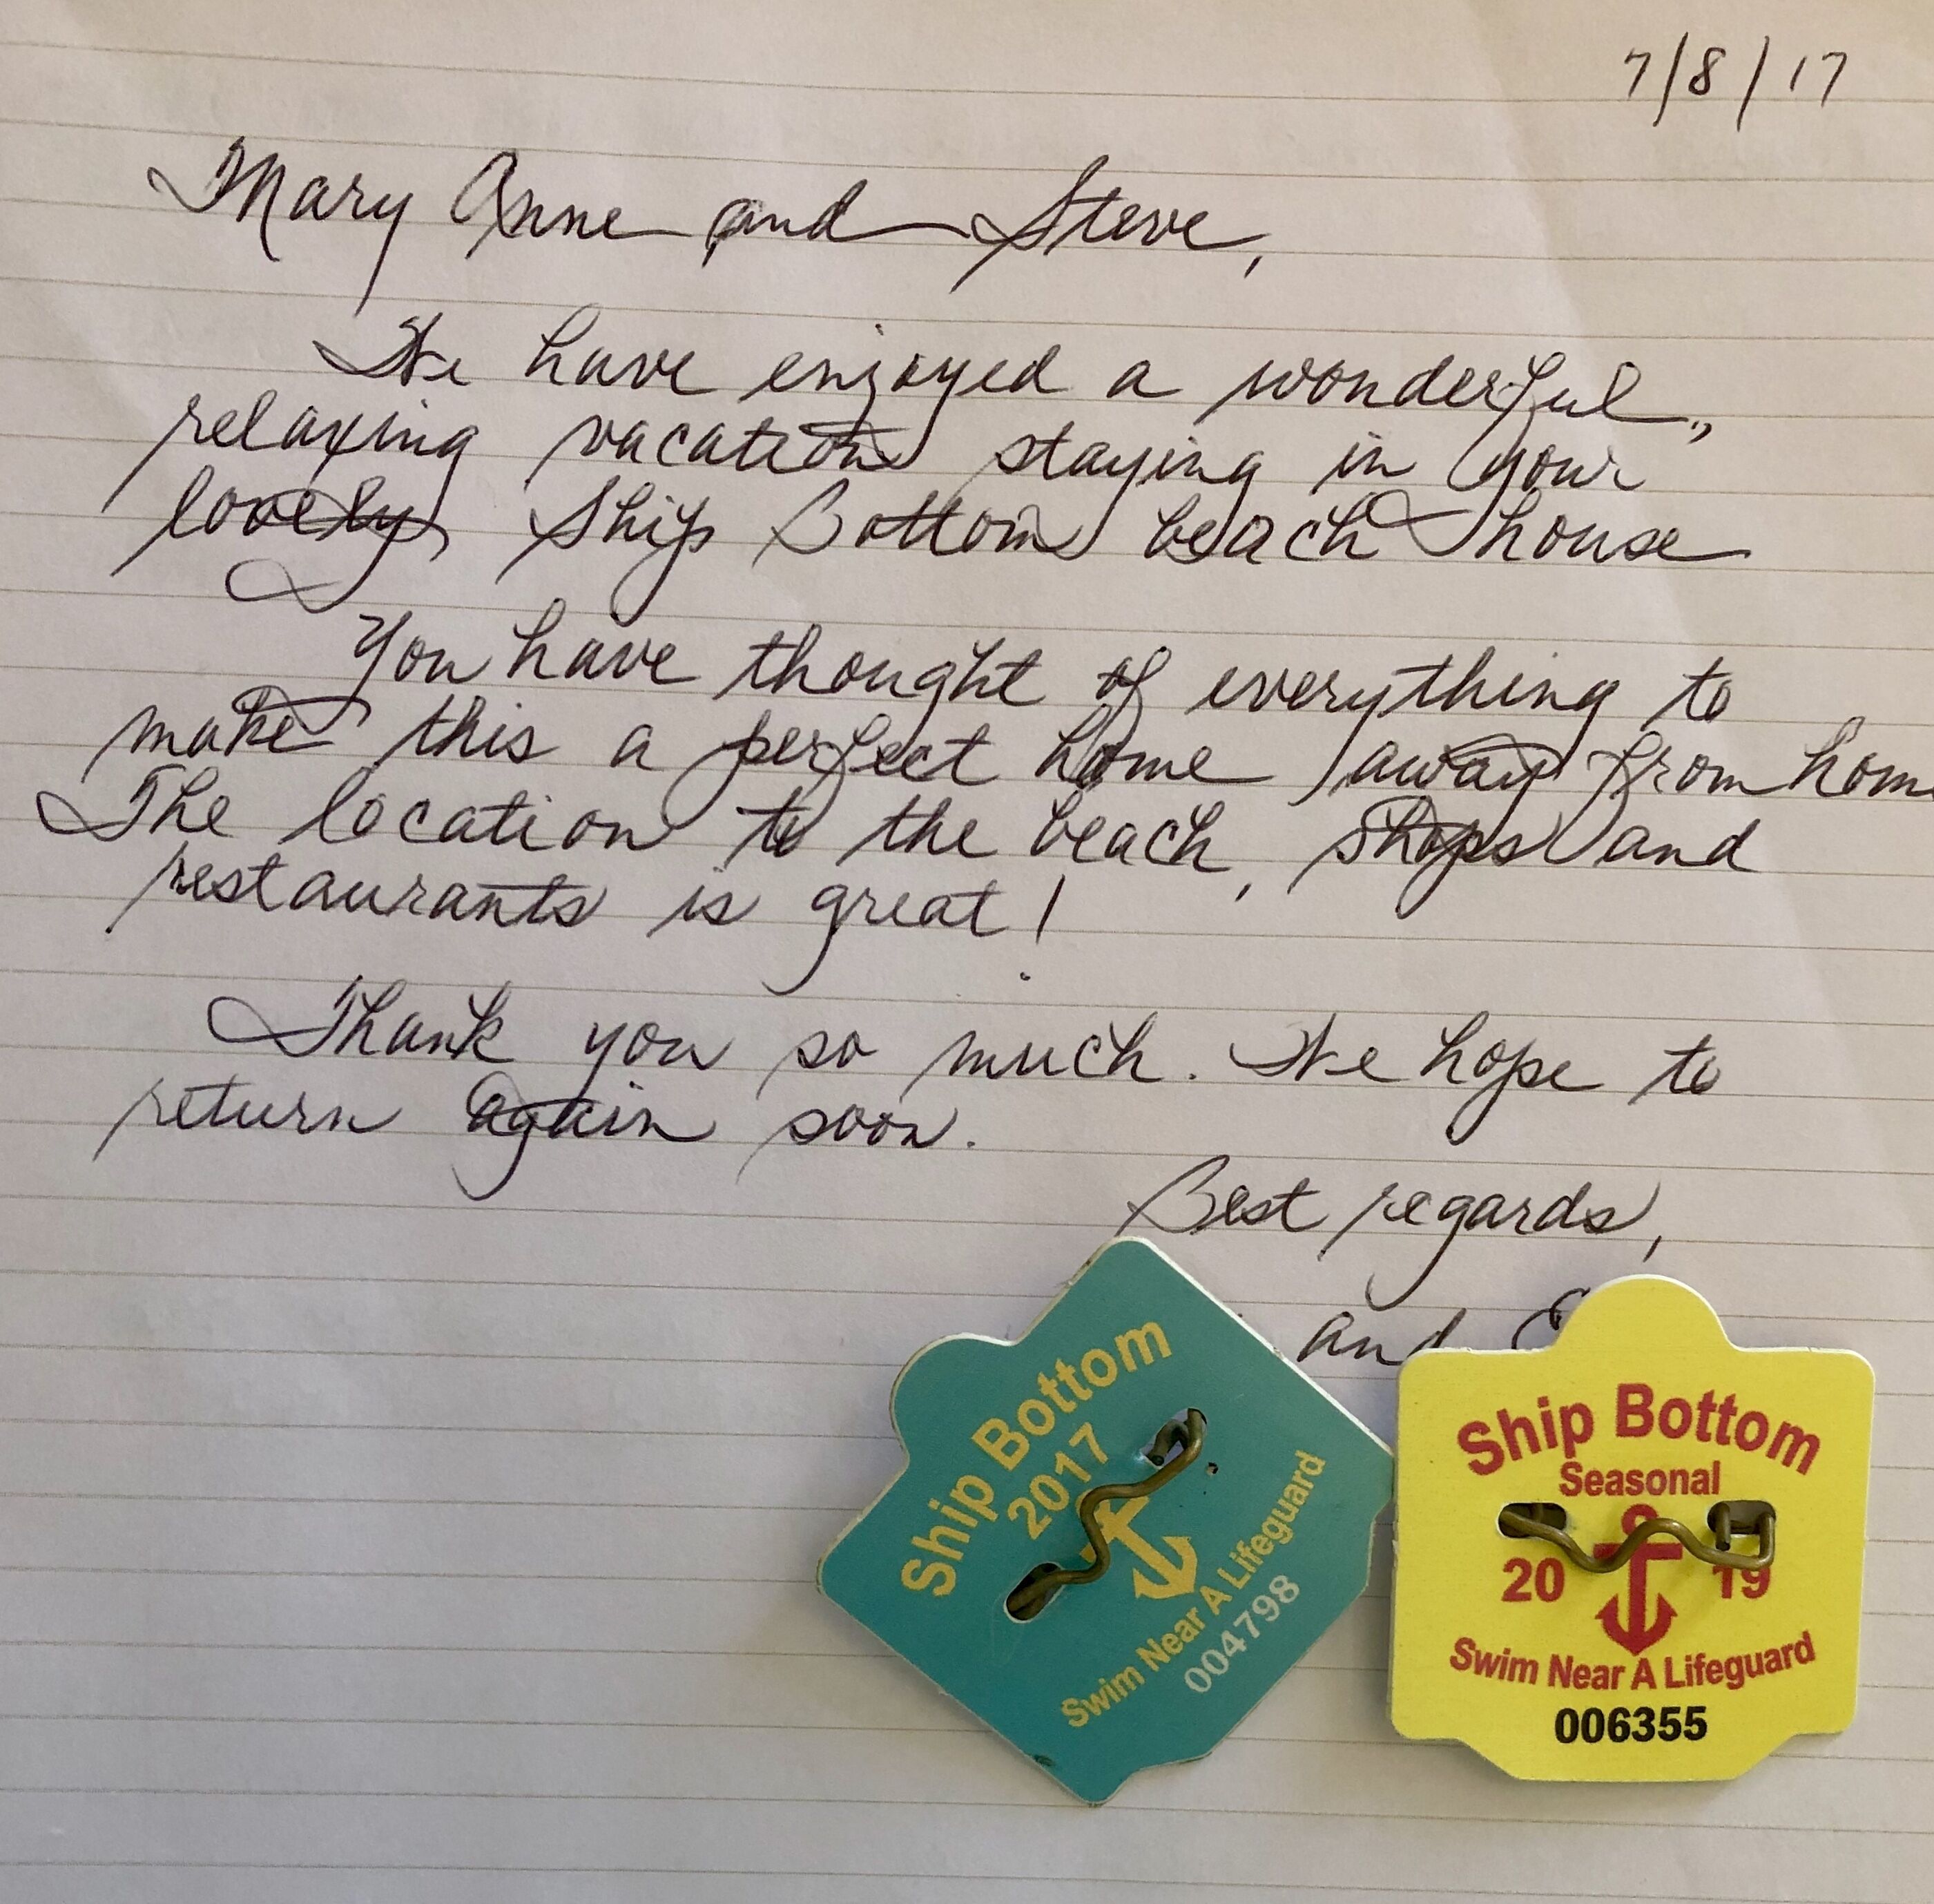 7/8/17
Mary Anne and Steve,
We have enjoyed a wonderful,
relaxing vacation staying in your
lovely Ship Bottom beach house
You have thought of everything to
make this a perfect home away from hom
The location to the beach, shops and
restaurants is great!
Thank you so much. We hope to
return again soon.
Best regards,
and
Ship Bottom
2017
Swim Near A Lifeguard
004798
Ship Bottom
Seasonal
20 19
Swim Near A Lifeguard
006355